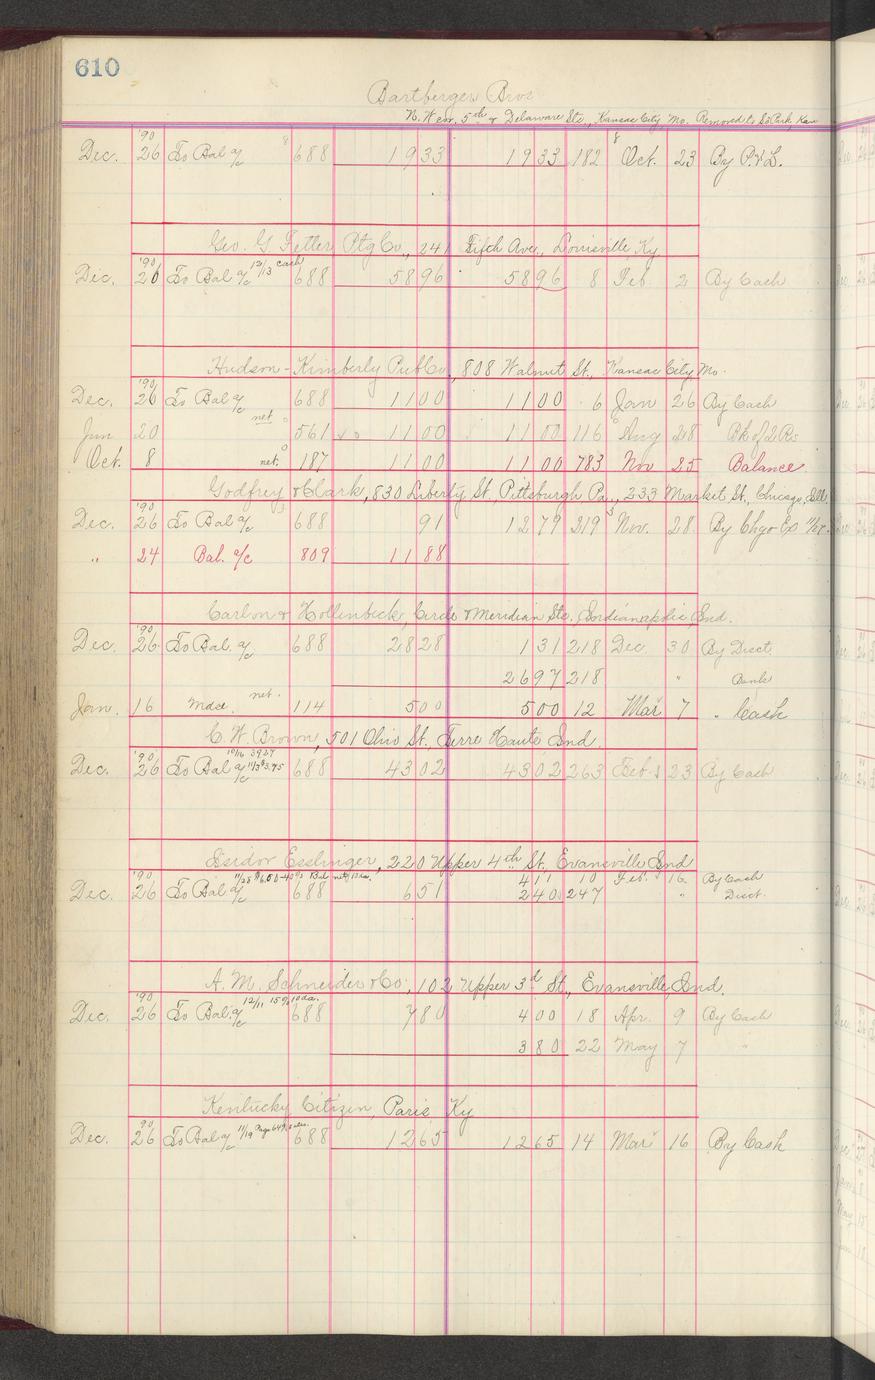 610
Bartberger Bros
N.W. cor. 5th & Delaware Sts., Kansas City, Mo. Removed to Park, Kan
'90 8 8
Dec. 26 To Bal a/c 688 19 33 19 33 182 Oct. 23 By P.&L.
Geo. G Fetter Ptg Co., 241 Fifth Ave., Louisville, Ky
'90 12/13 cash
Dec. 26 To Bal a/c 688 58 96 58 96 8 Feb 2 By Cash
Hudson-Kimberly Pub Co., 808 Walnut St., Kansas City, Mo.
'90
Dec. 26 To Bal a/c 688 11 00 11 00 6 Jan 26 By Cash
Jun 20 net 561 11 00 11 00 116 Aug 28 Bk of 2 Rs
Oct. 8 net. 187 11 00 11 00 783 Nov 25 Balance
Godfrey & Clark, 830 Liberty St., Pittsburgh Pa., 233 Market St., Chicago, Ill.
'90
Dec. 26 To Bal a/c 688 91 12 79 219 Nov. 28 By Chgo
" 24 Bal. a/c 809 11 88
Carlon & Hollenbeck, Circle & Meridian Sts. Indianapolis, Ind.
'90
Dec. 26 To Bal. a/c 688 28 28 1 31 218 Dec. 30 By Disct.
26 97 218 " Bank
Jan. 16 Mdse. net. 114 5 00 5 00 12 Mar 7 " Cash
C. W. Brown, 501 Ohio St. Terre Haute Ind.
'90 10/16 3927
Dec. 26 To Bal a/c 11/3 $3.75 688 43 02 43 02 263 Feb. 23 By Cash
Isidor Esslinger, 220 Upper 4th St., Evansville Ind
'90 11/28 $6.50-40% Bal net/10 da. 4 11 10 Feb. 16 By Cash
Dec. 26 To Bal a/c 688 6 51 2 40 247 " Disct.
A. M. Schneider & Co., 102 Upper 3d St., Evansville, Ind.
'90 12/11 15% 10 da.
Dec. 26 To Bal. a/c 688 7 80 4 00 18 Apr. 9 By Cash
3 80 22 May 7 "
Kentucky Citizen, Paris Ky
'90
Dec. 26 To Bal a/c 11/19 Page 649 688 12 65 12 65 14 Mar 16 By Cash